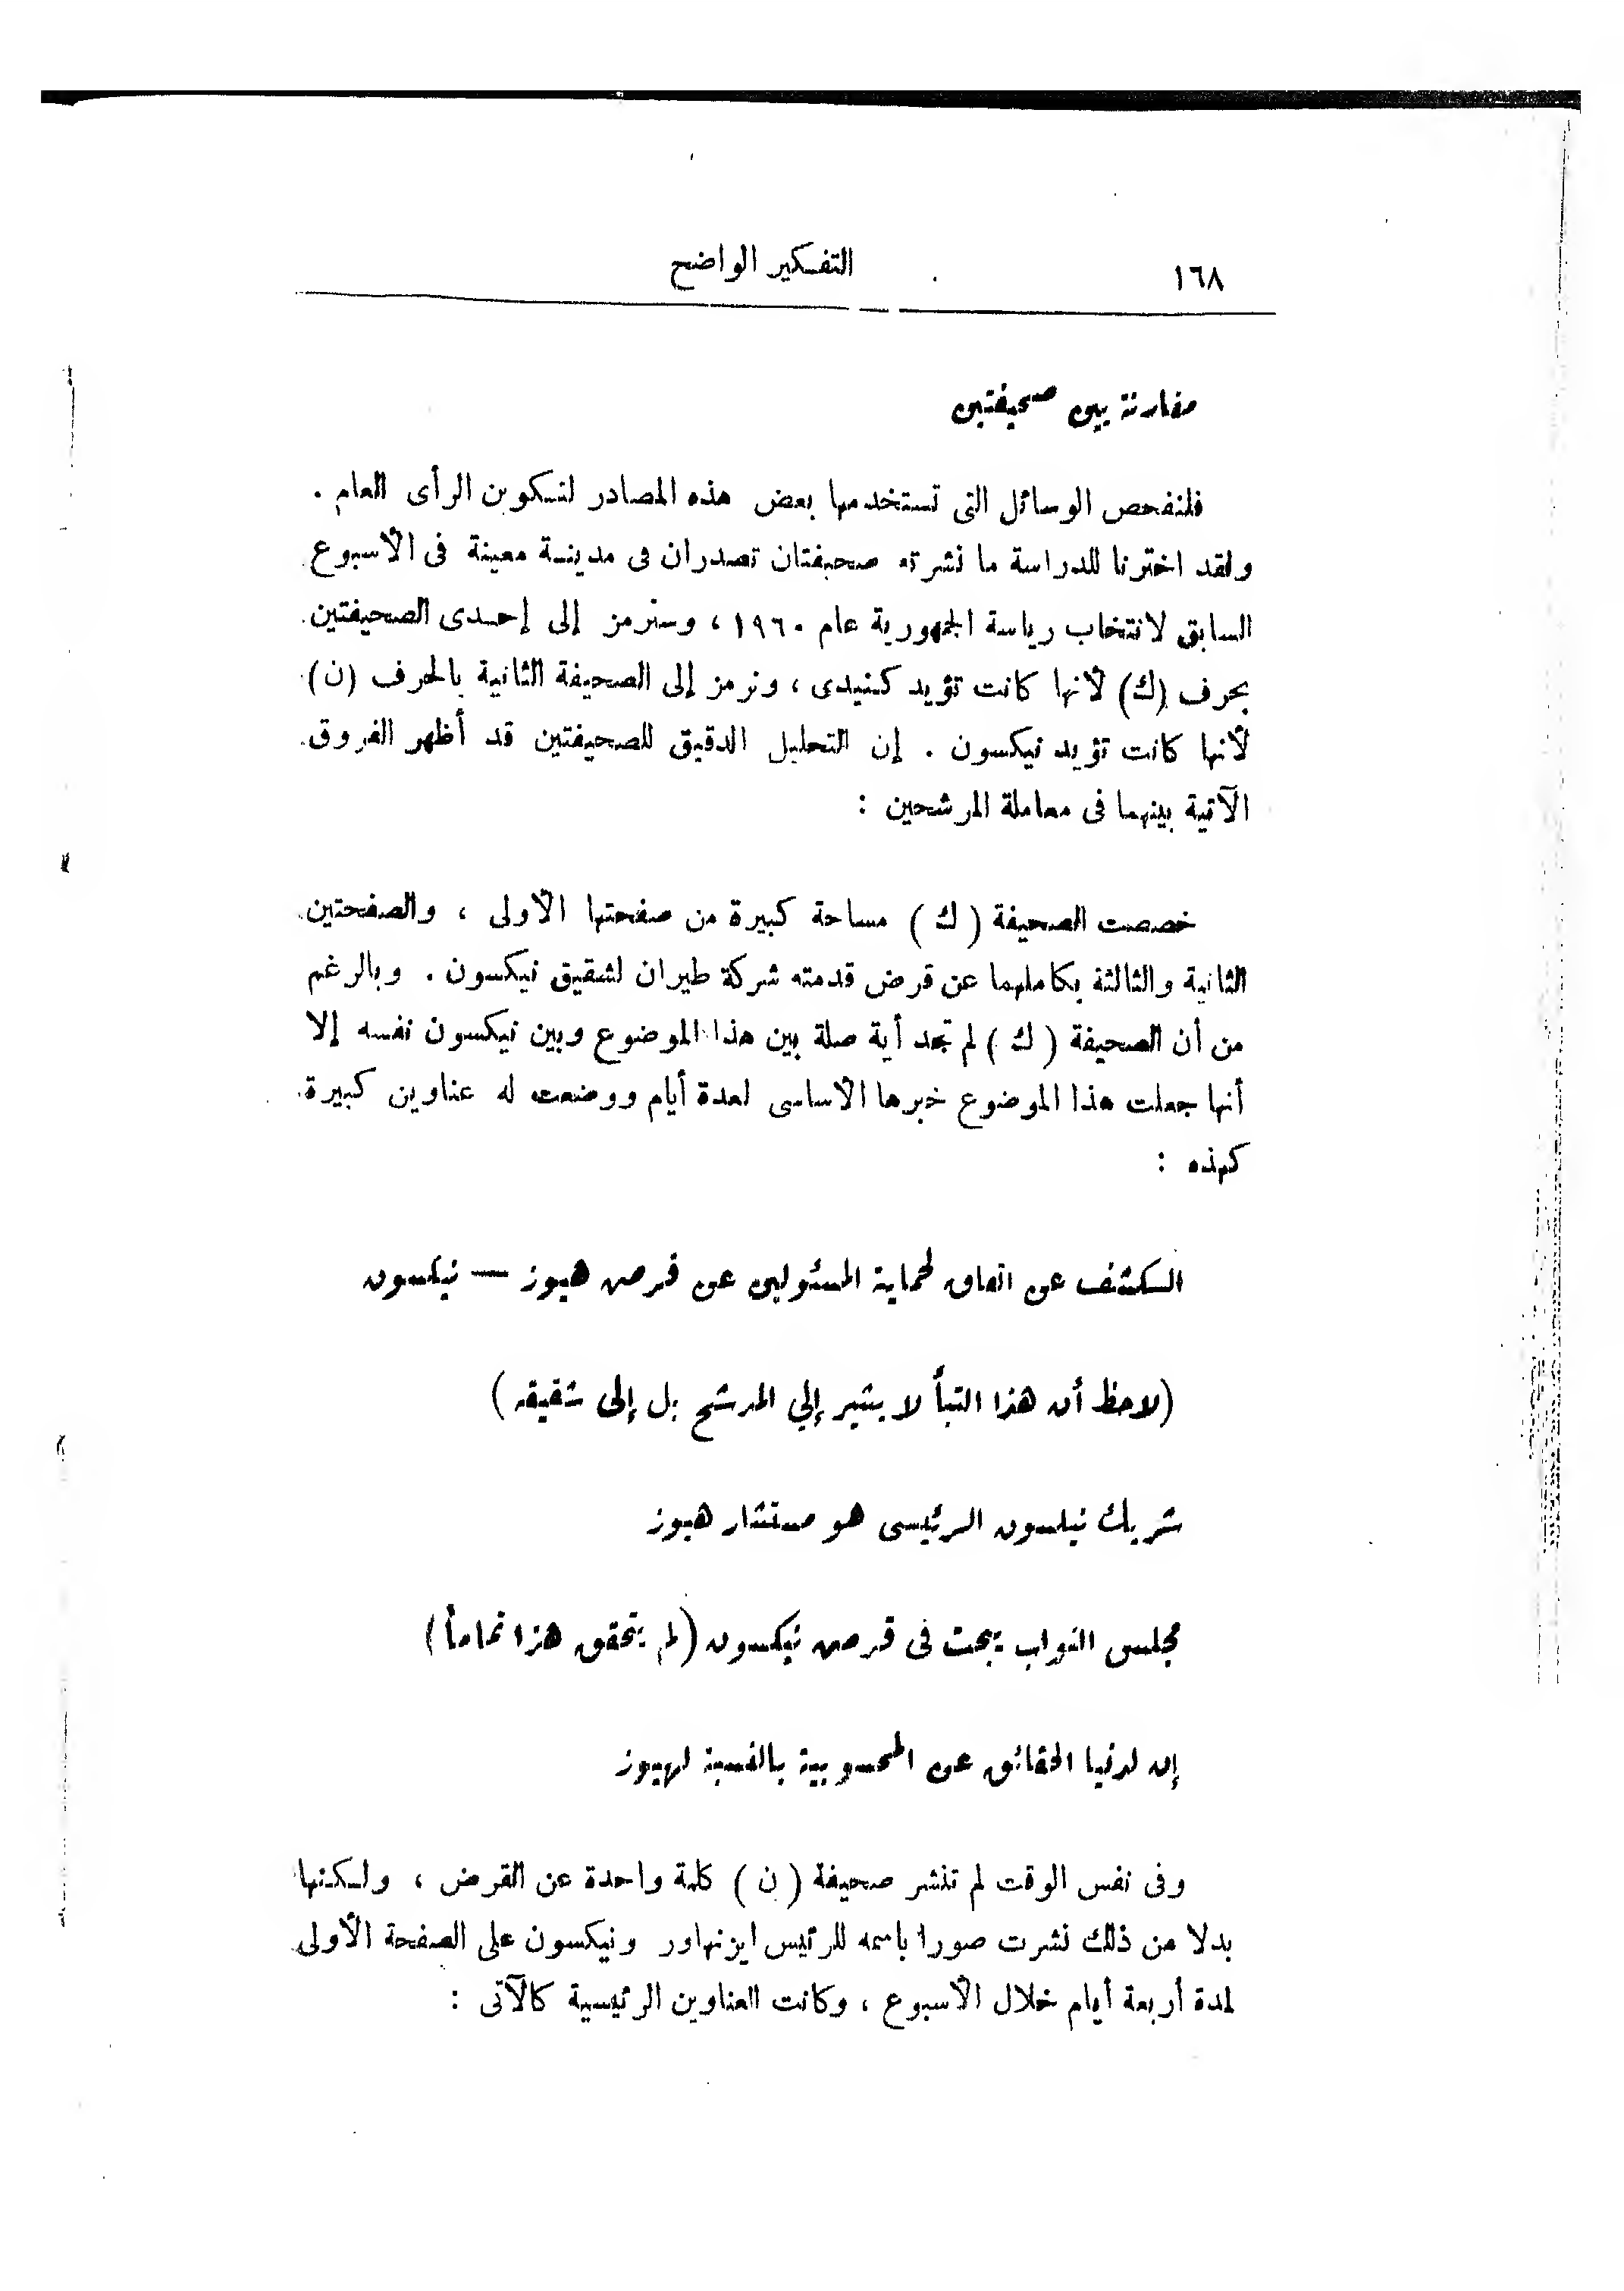 ١٦٨
التفكير الواضح
مقارنة بين صحيفتين
فلنفحص الوسائل التى تستخدمها بعض هذه المصادر لتكوين الرأى العام .
ولقد اخترنا للدراسة ما نشرته صحيفتان تصدران فى مدينة معينة فى الأسبوع
السابق لانتخاب رياسة الجمهورية عام ١٩٦٠ ، وسنرمز إلى إحدى الصحيفتين
بحرف (ك) لأنها كانت تؤيد كنيدى ، ونرمز إلى الصحيفة الثانية بالحرف (ن)
لأنها كانت تؤيد نيكسون . إن التحليل الدقيق للصحيفتين قد أظهر الفروق
الآتية بينهما فى معاملة المرشحين :
خصصت الصحيفة ( ك ) مساحة كبيرة من صفحتها الأولى ، والصفحتين
الثانية والثالثة بكاملهما عن قرض قدمته شركة طيران لشقيق نيكسون . وبالرغم
من أن الصحيفة ( ك ) لم تجد أية صلة بين هذا الموضوع وبين نيكسون نفسه إلا
أنها جعلت هذا الموضوع خبرها الأساسى لعدة أيام ووضعت له عناوين كبيرة
كهذه :
الكشف عن اتفاق لحماية المسئولين عن قرض هيوز — نيكسون
(لاحظ أن هذا النبأ لا يشير إلي المرشح بل إلى شقيقه )
شريك نيكسون الرئيسى هو مستشار هيوز
مجلس النواب يبحث فى قرض نيكسون (لم يتحقق هذا تماماً)
إن لدنيا الحقائق عن المحسوبية بالنسبة لهيوز
وفى نفس الوقت لم تنشر صحيفة ( ن ) كلمة واحدة عن القرض ، ولكنها
بدلا من ذلك نشرت صورا باسمه للرئيس ايزنهاور ونيكسون على الصفحة الأولى
لمدة أربعة أيام خلال الأسبوع ، وكانت العناوين الرئيسية كالآتى :